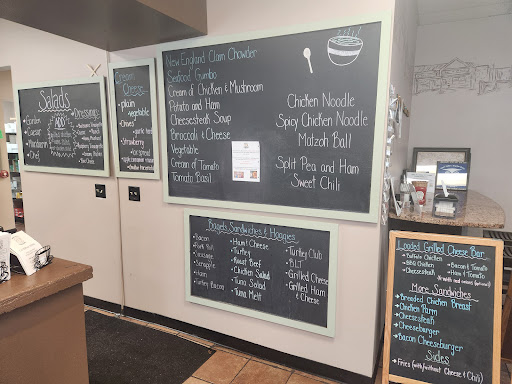 Salads
Garden
Caesar
Mandarin
Chef
ADD
Dressings
Cream
Cheese
plain
vegetable
Chives
garlic herb
Strawberry
New England Clam Chowder
Seafood Gumbo
Cream of Chicken & Mushroom
Potato and Ham
Cheesesteak Soup
Broccoli & Cheese
Vegetable
Cream of Tomato
Tomato Basil
Chicken Noodle
Spicy Chicken Noodle
Matzoh Ball
Split Pea and Ham
Sweet Chili
Bagels, Sandwiches & Hoagies
Bacon
Pork Roll
Sausage
Scrapple
Ham
Turkey Bacon
Ham & Cheese
Turkey
Roast Beef
Chicken Salad
Tuna Salad
Tuna Melt
Turkey Club
BLT
Grilled Cheese
Grilled Ham
& Cheese
Loaded Grilled Cheese Bar
Buffalo Chicken
BBQ Chicken
Cheesesteak
Bacon & Tomato
Ham & Tomato
More Sandwiches
Breaded Chicken Breast
Chicken Parm
Cheesesteak
Cheeseburger
Bacon Cheeseburger
Sides
Fries (with/without Cheese & Chili)